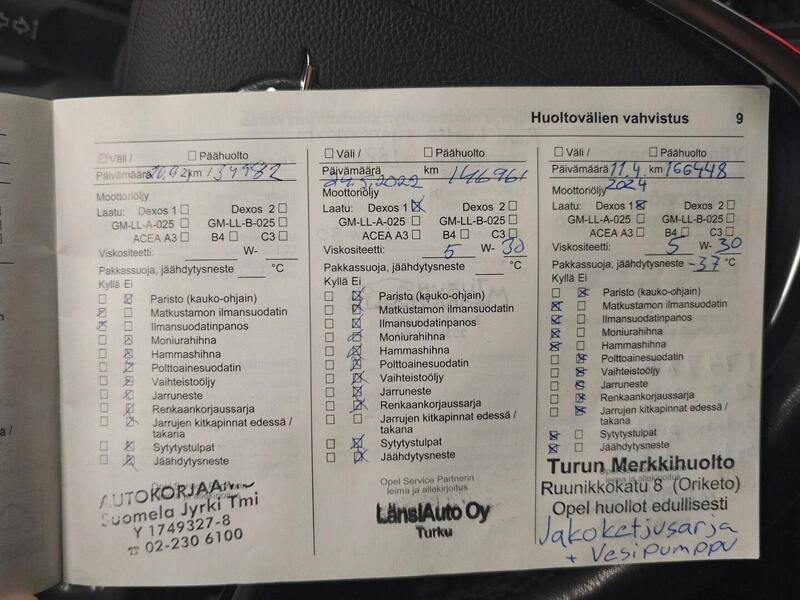 Huoltovälien vahvistus 9
Väli / Päähuolto
Päivämäärä km 134982
Moottoriöljy
Laatu: Dexos 1 Dexos 2
GM-LL-A-025 GM-LL-B-025
ACEA A3 B4 C3
Viskositeetti: W-
Pakkassuoja, jäähdytysneste °C
Kyllä Ei
Paristo (kauko-ohjain)
Matkustamon ilmansuodatin
Ilmansuodatinpanos
Moniurahihna
Hammashihna
Polttoainesuodatin
Vaihteistoöljy
Jarruneste
Renkaankorjaussarja
Jarrujen kitkapinnat edessä /
takana
Sytytystulpat
Jäähdytysneste
AUTOKORJAAMO
Suomela Jyrki Tmi
Y 1749327-8
☎ 02-230 6100
Väli / Päähuolto
Päivämäärä km
24.5.2022 146961
Moottoriöljy
Laatu: Dexos 1 Dexos 2
GM-LL-A-025 GM-LL-B-025
ACEA A3 B4 C3
Viskositeetti: 5 W- 30
Pakkassuoja, jäähdytysneste °C
Kyllä Ei
Paristo (kauko-ohjain)
Matkustamon ilmansuodatin
Ilmansuodatinpanos
Moniurahihna
Hammashihna
Polttoainesuodatin
Vaihteistoöljy
Jarruneste
Renkaankorjaussarja
Jarrujen kitkapinnat edessä /
takana
Sytytystulpat
Jäähdytysneste
Opel Service Partnerin
leima ja allekirjoitus
LänsiAuto Oy
Turku
Väli / Päähuolto
Päivämäärä 11.4. km 166448
2024
Moottoriöljy
Laatu: Dexos 1 Dexos 2
GM-LL-A-025 GM-LL-B-025
ACEA A3 B4 C3
Viskositeetti: 5 W- 30
Pakkassuoja, jäähdytysneste -37 °C
Kyllä Ei
Paristo (kauko-ohjain)
Matkustamon ilmansuodatin
Ilmansuodatinpanos
Moniurahihna
Hammashihna
Polttoainesuodatin
Vaihteistoöljy
Jarruneste
Renkaankorjaussarja
Jarrujen kitkapinnat edessä /
takana
Sytytystulpat
Jäähdytysneste
Turun Merkkihuolto
leima ja allekirjoitus
Ruunikkokatu 8 (Oriketo)
Opel huollot edullisesti
Jakoketjusarja
+ Vesipumppu